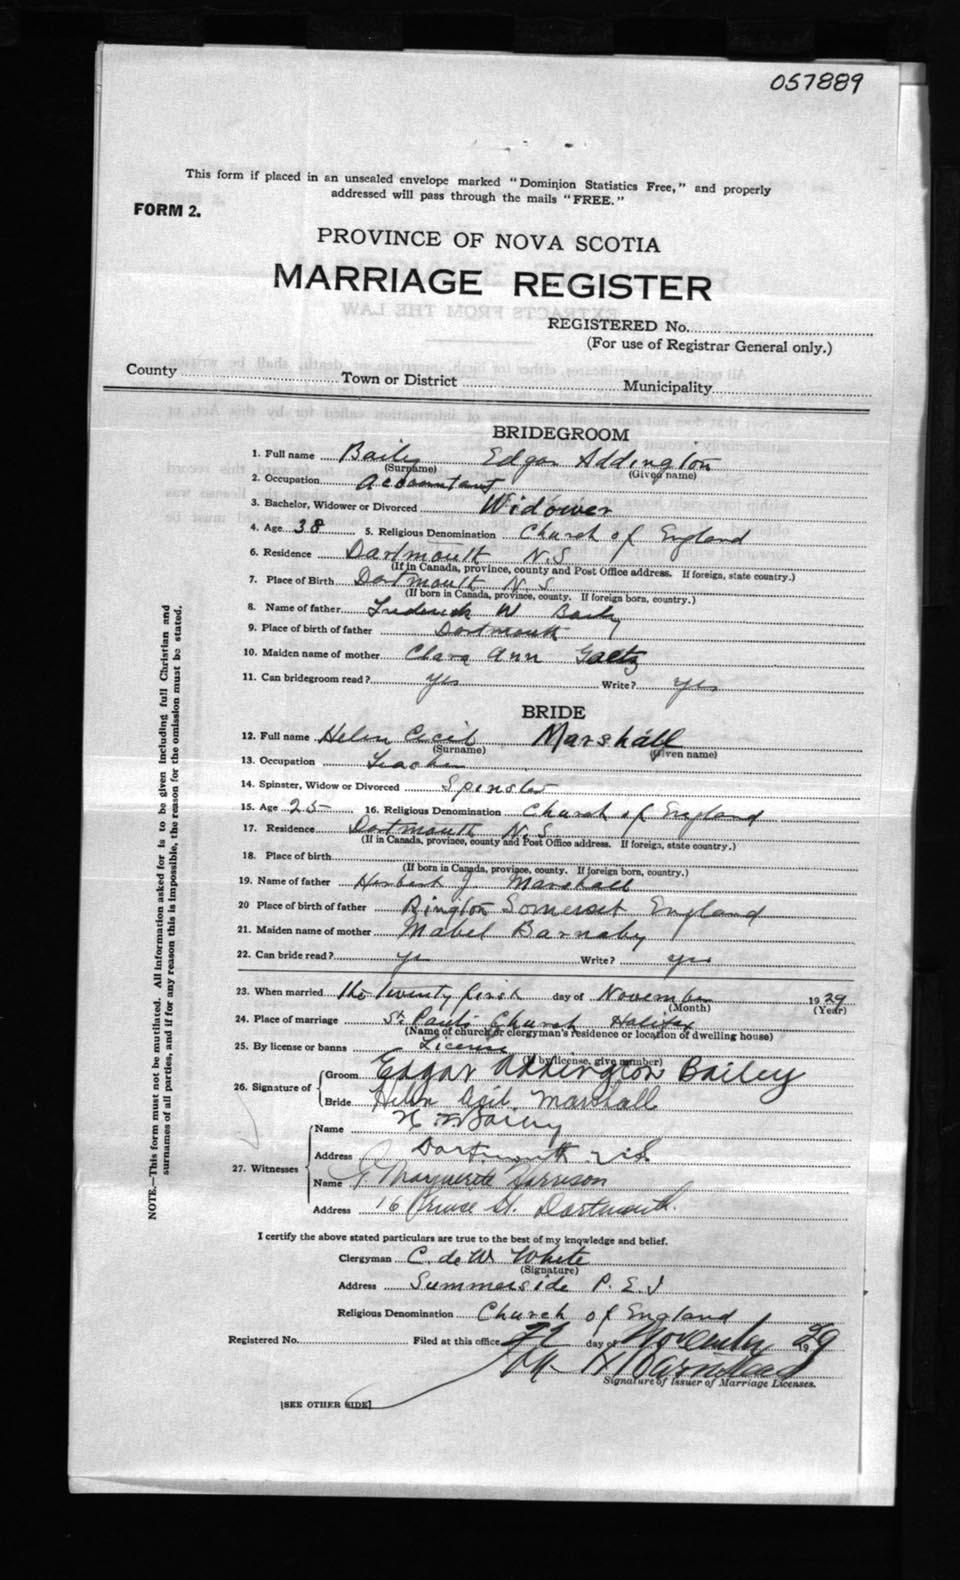 057889
This form if placed in an unsealed envelope marked "Dominion Statistics Free," and properly
addressed will pass through the mails "FREE."
FORM 2.
PROVINCE OF NOVA SCOTIA
MARRIAGE REGISTER
REGISTERED No.
(For use of Registrar General only.)
County Town or District Municipality
BRIDEGROOM
1. Full name Bailey Edgar Addington
(Surname) (Given name)
2. Occupation Accountant
3. Bachelor, Widower or Divorced Widower
4. Age 38 5. Religious Denomination Church of England
6. Residence Dartmouth N.S
(If in Canada, province, county and Post Office address. If foreign, state country.)
7. Place of Birth Dartmouth N.S
(If born in Canada, province, county. If foreign born, country.)
8. Name of father Frederick W Bailey
9. Place of birth of father Dartmouth
10. Maiden name of mother Clara Ann Gaetz
11. Can bridegroom read? yes Write? yes
BRIDE
12. Full name Helen Cecil Marshall
(Surname) (Given name)
13. Occupation Teacher
14. Spinster, Widow or Divorced Spinster
15. Age 25 16. Religious Denomination Church of England
17. Residence Dartmouth N.S
(If in Canada, province, county and Post Office address. If foreign, state country.)
18. Place of birth
(If born in Canada, province, county. If foreign born, country.)
19. Name of father Herbert J. Marshall
20 Place of birth of father Somerset England
21. Maiden name of mother Mabel Barnaby
22. Can bride read? yes Write? yes
23. When married the Twenty first day of November 1929
(Month) (Year)
24. Place of marriage St Pauls Church Halifax
(Name of church or clergyman's residence or location of dwelling house)
25. By license or banns License
(If by license, give number)
26. Signature of Groom Edgar Addington Bailey
Bride Helen Cecil Marshall
27. Witnesses
Name Bailey
Address Dartmouth N.S.
Name Marguerite Harrison
Address 16 Prince St. Dartmouth.
I certify the above stated particulars are true to the best of my knowledge and belief.
Clergyman C. de W. White
(Signature)
Address Summerside P.E.I
Religious Denomination Church of England
Registered No. Filed at this office 22 day of November 1929
Signature of Issuer of Marriage Licenses.
[SEE OTHER SIDE]
NOTE.—This form must not be mutilated. All information asked for is to be given including full Christian and
surnames of all parties, and if for any reason this is impossible, the reason for the omission must be stated.